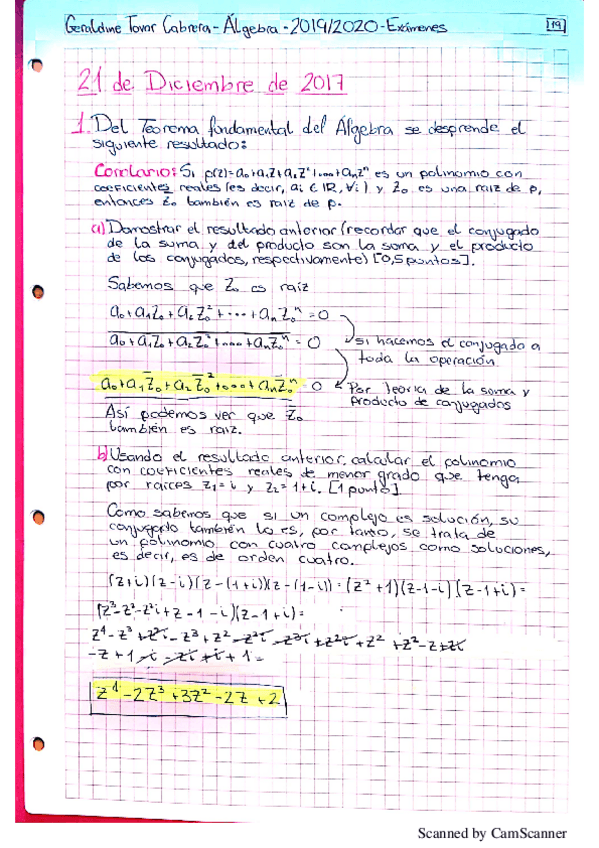 Geraldine Tovar Cabrera - Álgebra - 2019/2020 - Exámenes
19
21 de Diciembre de 2017
1. Del Teorema fundamental del Álgebra se desprende el
siguiente resultado:
Corolario: Si p(z)=a₀+a₁z+a₂z²+...+aₙzⁿ es un polinomio con
coeficientes reales (es decir, aᵢ ∈ ℝ, ∀i) y z₀ es una raiz de p,
entonces z̄₀ también es raiz de p.
a) Demostrar el resultado anterior (recordar que el conjugado
de la suma y del producto son la suma y el producto
de los conjugados, respectivamente) [0,5 puntos].
Sabemos que z₀ es raíz
a₀+a₁z₀+a₂z₀²+...+aₙz₀ⁿ=0
a₀+a₁z₀+a₂z₀²+...+aₙz₀ⁿ=0
si hacemos el conjugado a
toda la operación
a₀+a₁z̄₀+a₂z̄₀²+...+aₙz̄₀ⁿ=0
Por teoría de la suma y
producto de conjugados
Así podemos ver que z̄₀
también es raiz.
b) Usando el resultado anterior, calcular el polinomio
con coeficientes reales de menor grado que tenga
por raíces z₁=i y z₂=1+i. [1 punto]
Como sabemos que si un complejo es solución, su
conjugado también lo es, por tanto, se trata de
un polinomio con cuatro complejos como soluciones,
es decir, es de orden cuatro.
(z+i)(z-i)(z-(1+i))(z-(1-i))=(z²+1)(z-1-i)(z-1+i)=
(z³-z²-z²i+z-1-i)(z-1+i)=
z⁴-z³+z³i-z³+z²-z²i-z³i+z²i+z²+z²-z+zi
-z+1-i-zi+i+1=
z⁴-2z³+3z²-2z+2
Scanned by CamScanner